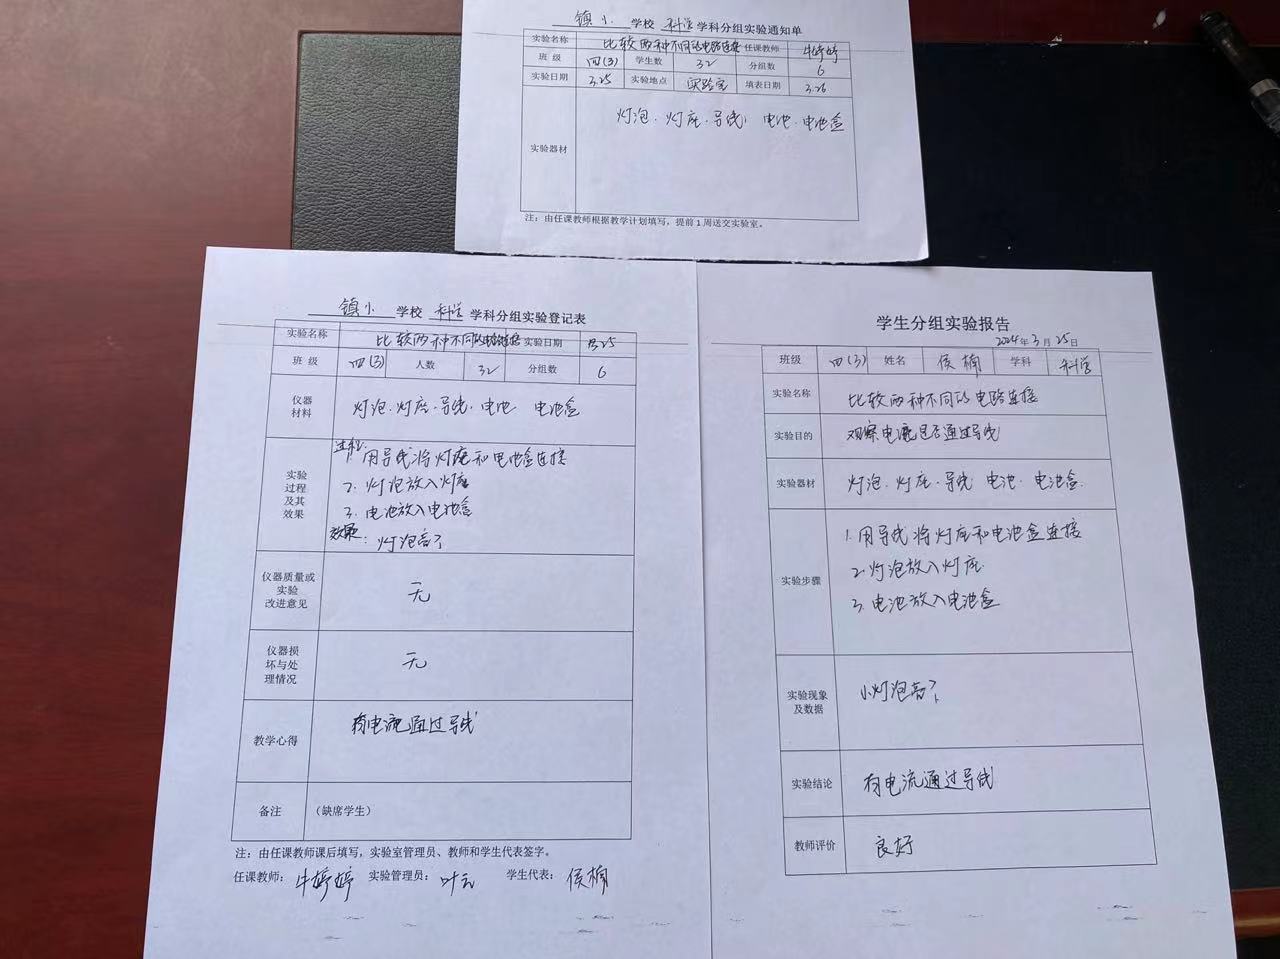 镇小 学校 科学 学科分组实验通知单
实验名称 比较两种不同的电路连接 任课教师 牛婷婷
班 级 四(3) 学生数 32 分组数 6
实验日期 3.25 实验地点 实验室 填表日期 3.26
实验器材 灯泡.灯座.导线 电池.电池盒
注：由任课教师根据教学计划填写，提前1周送交实验室。
镇小 学校 科学 学科分组实验登记表
实验名称 比较两种不同的电路连接 实验日期 3.25
班 级 四(3) 人数 32 分组数 6
仪器
材料
灯泡.灯座.导线.电池 电池盒
实验
过程
及其
效果
过程:
1. 用导线将灯座和电池盒连接
2. 灯泡放入灯座
3. 电池放入电池盒
效果：灯泡亮了
仪器质量或
实验
改进意见
无
仪器损
坏与处
理情况
无
教学心得 有电流通过导线
备注 （缺席学生）
注：由任课教师课后填写，实验室管理员、教师和学生代表签字。
任课教师：牛婷婷 实验管理员：叶云 学生代表：侯楠
学生分组实验报告
2024年3月25日
班级 四(3) 姓名 侯楠 学科 科学
实验名称 比较两种不同的电路连接
实验目的 观察电流是否通过导线
实验器材 灯泡.灯座.导线 电池.电池盒.
实验步骤
1. 用导线将灯座和电池盒连接
2. 灯泡放入灯座
3. 电池放入电池盒
实验现象
及数据
小灯泡亮了
实验结论 有电流通过导线
教师评价 良好